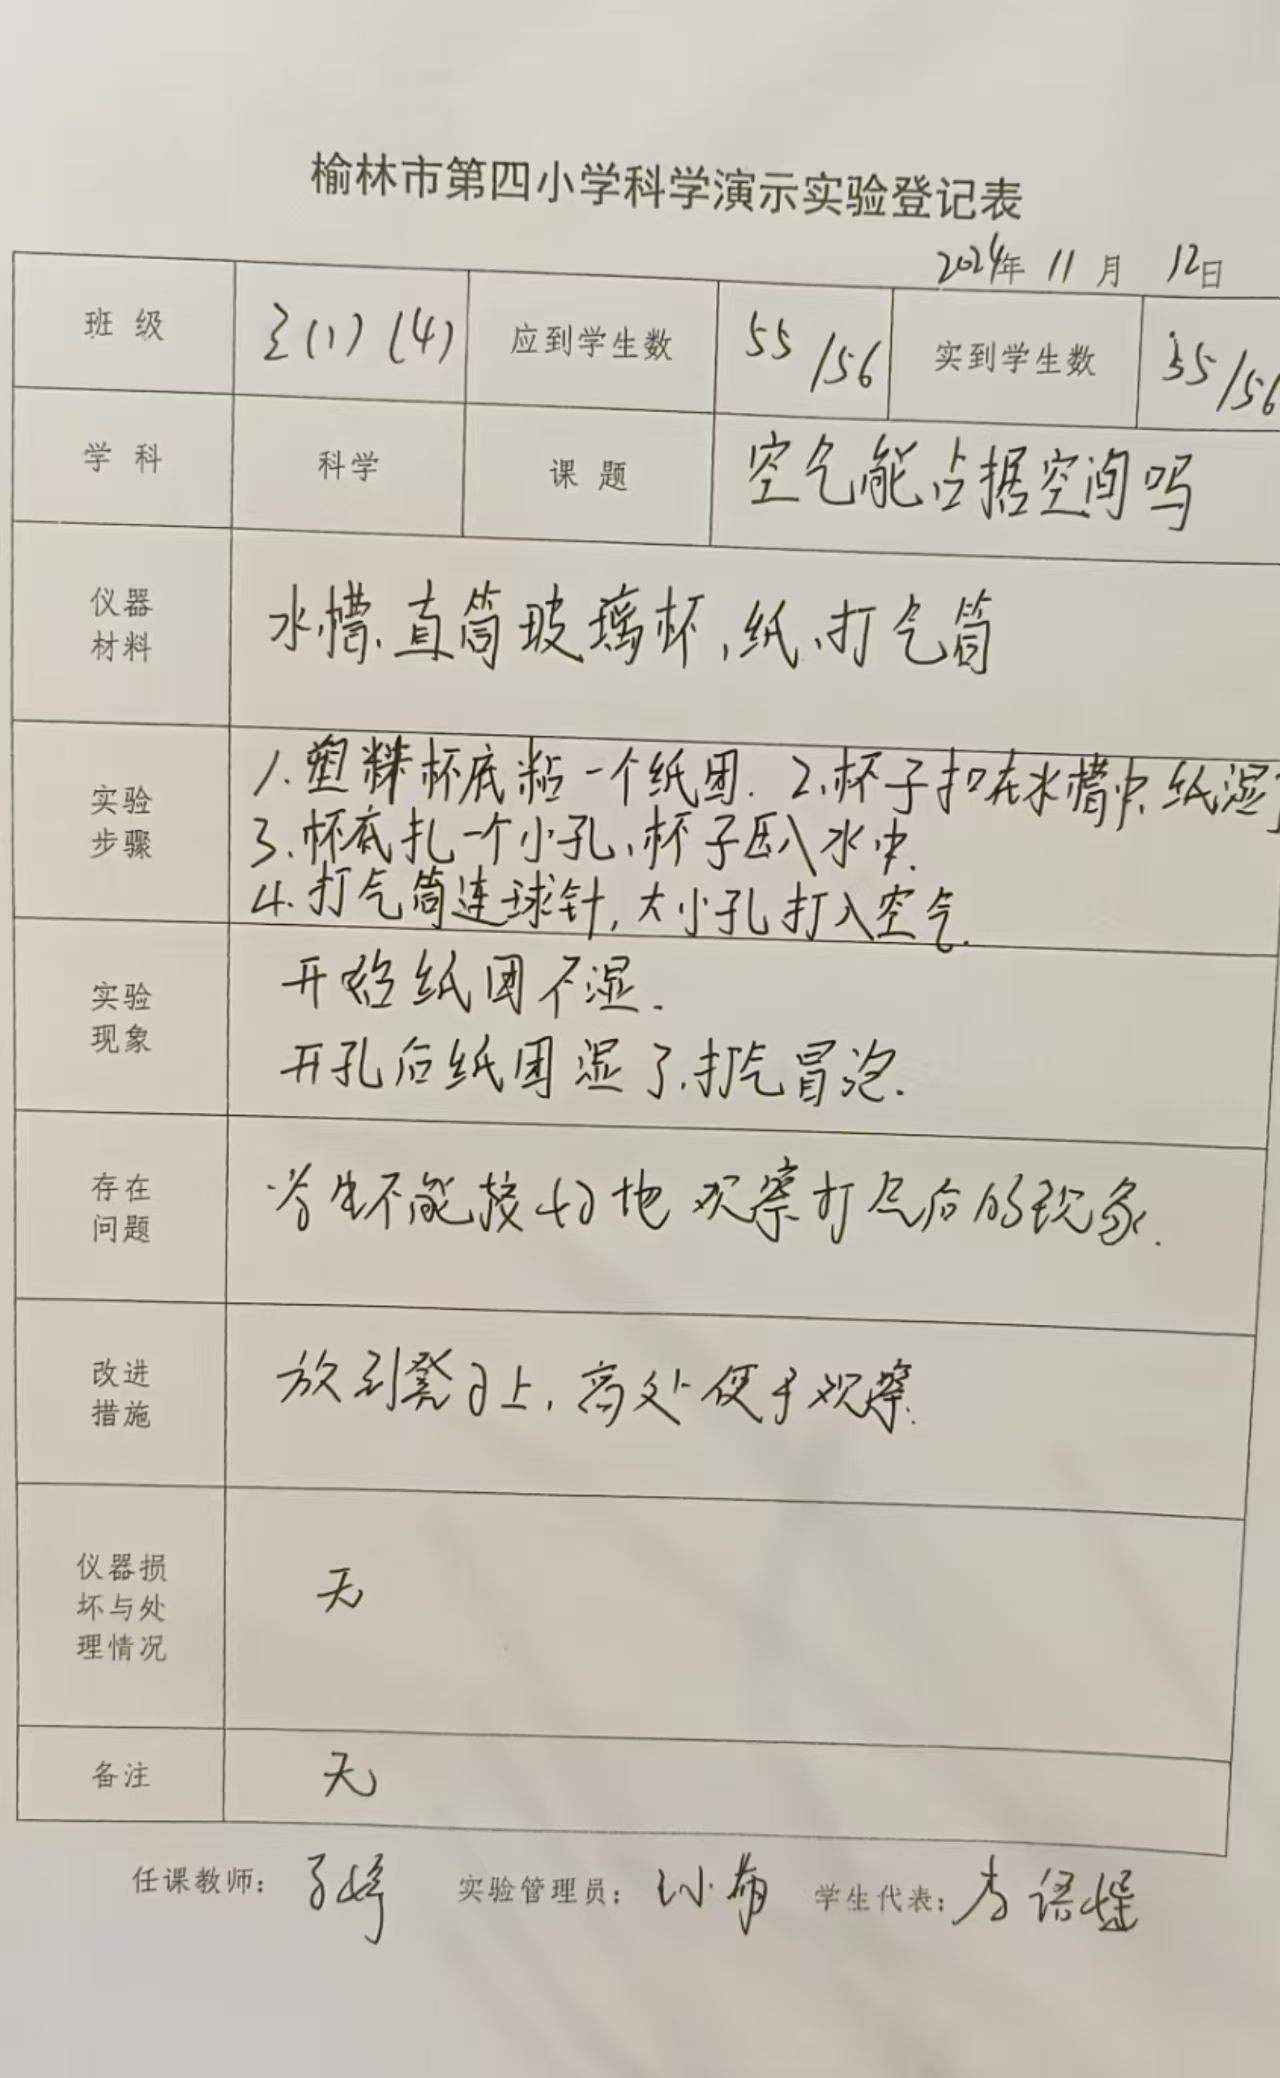 榆林市第四小学科学演示实验登记表
2024年 11月 12日
班级 三(1)(4) 应到学生数 55/56 实到学生数 55/56
学科 科学 课题 空气能占据空间吗
仪器材料 水槽、直筒玻璃杯,纸、打气筒
实验步骤
1.塑料杯底粘一个纸团. 2.杯子扣在水槽中,纸湿
3.杯底扎一个小孔,杯子压入水中.
4.打气筒连球针,大小孔打入空气.
实验现象
开始纸团不湿.
开孔后纸团湿了,打气冒泡.
存在问题
学生不能较好地观察打气后的现象.
改进措施
放到凳子上,高处便于观察.
仪器损坏与处理情况 无
备注 无
任课教师: 实验管理员: 学生代表: